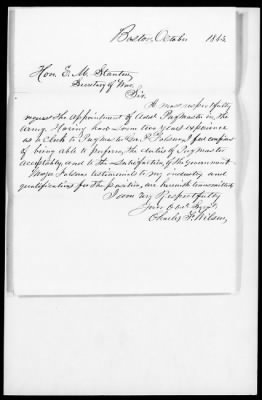 Boston, October 1863
Hon E. M. Stanton,
Secretary of War,
Sir,
I most respectfully
request the appointment of Addl Paymaster in the
Army. Having had some two years experience
as a Clerk to Paymaster I feel confident
of being able to perform the duties of Paymaster
acceptably and to the satisfaction of the Government
testimonials to my and
qualifications for the position are herewith transmitted
I am very Respectfully
Your Obt Servt
Charles F. Wilson,